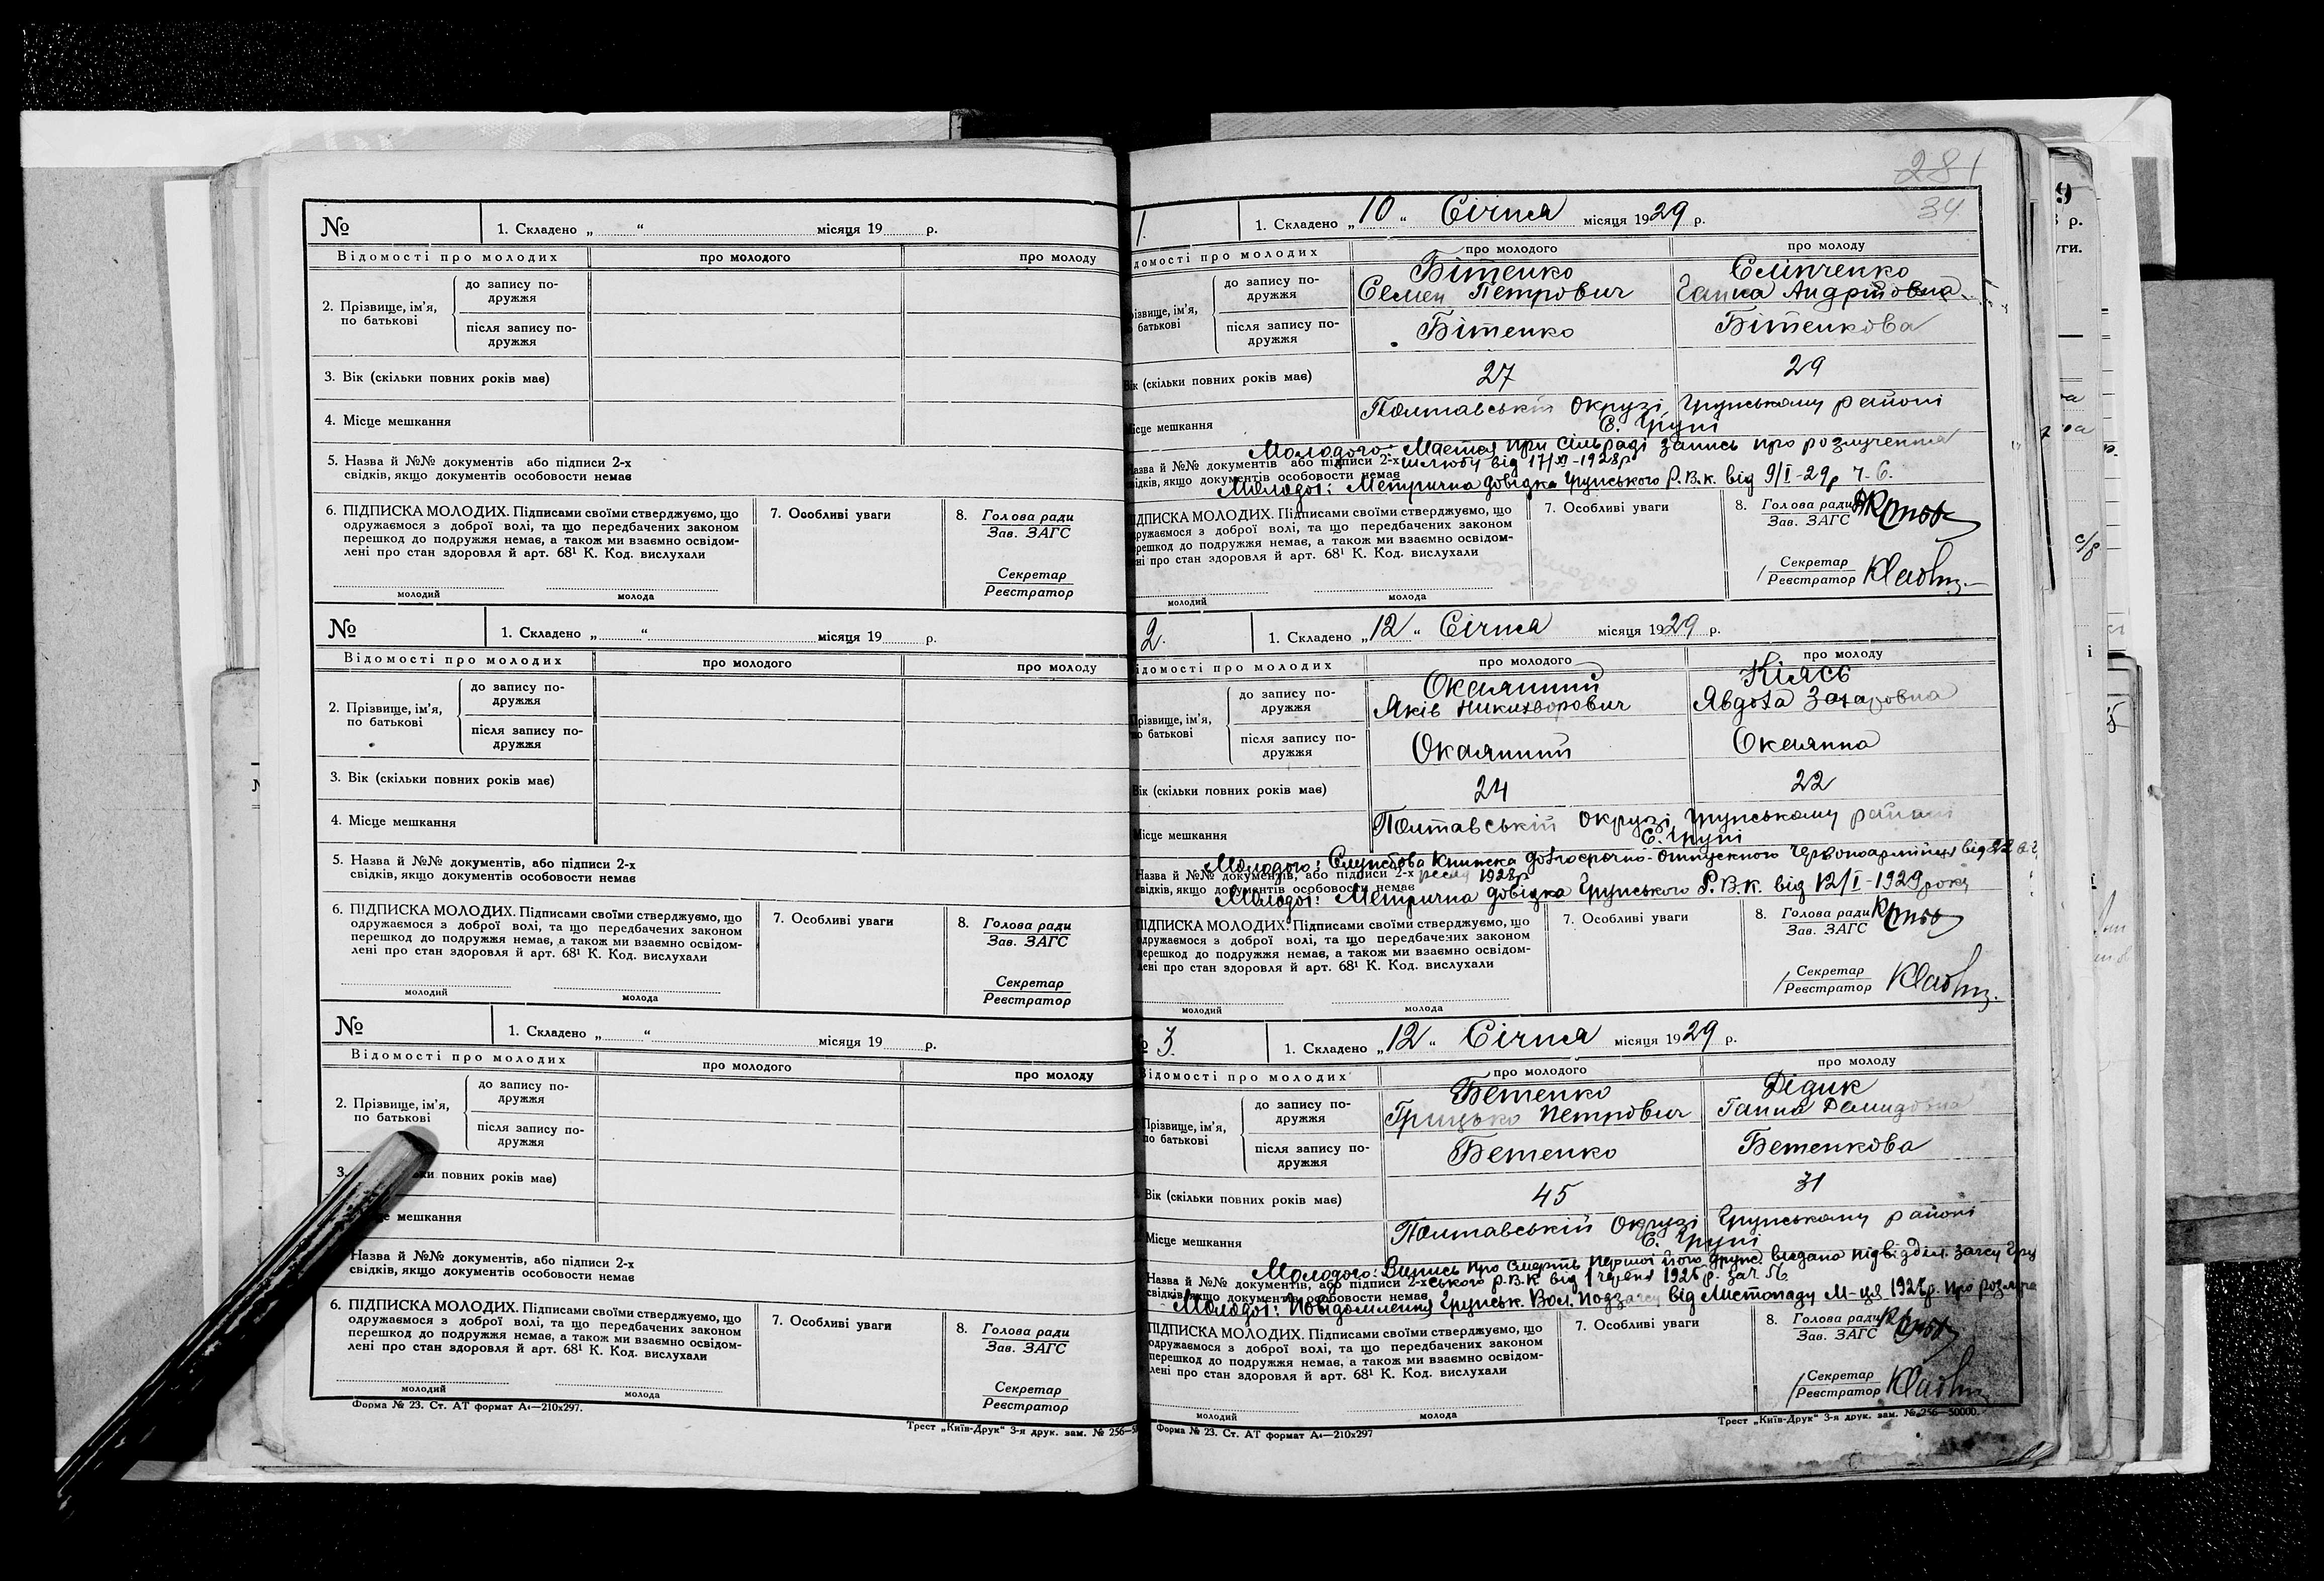 №
1. Складено „ “ місяця 19 р.
Відомості про молодих
про молодого
про молоду
2. Прізвище, ім’я, по батькові
до запису по-
дружжя
після запису по-
дружжя
3. Вік (скільки повних років має)
4. Місце мешкання
5. Назва й №№ документів або підписи 2-х
свідків, якщо документів особовости немає
6. ПІДПИСКА МОЛОДИХ. Підписами своїми стверджуємо, що
одружаємося з доброї волі, та що передбачених законом
перешкод до подружжя немає, а також ми взаємно освідом-
лені про стан здоровля й арт. 68¹ К. Код. вислухали
молодий
молода
7. Особливі уваги
8. Голова ради
Зав. ЗАГС
Секретар
Реєстратор
№
1. Складено „ “ місяця 19 р.
Відомості про молодих
про молодого
про молоду
2. Прізвище, ім’я,
по батькові
до запису по-
дружжя
після запису по-
дружжя
3. Вік (скільки повних років має)
4. Місце мешкання
5. Назва й №№ документів, або підписи 2-х
свідків, якщо документів особовости немає
6. ПІДПИСКА МОЛОДИХ. Підписами своїми стверджуємо, що
одружаємося з доброї волі, та що передбачених законом
перешкод до подружжя немає, а також ми взаємно освідом-
лені про стан здоровля й арт. 68¹ К. Код. вислухали
молодий
молода
7. Особливі уваги
8. Голова ради
Зав. ЗАГС
Секретар
Реєстратор
№
1. Складено „ “ місяця 19 р.
Відомості про молодих
про молодого
про молоду
2. Прізвище, ім’я,
по батькові
до запису по-
дружжя
після запису по-
дружжя
3.
повних років має)
мешкання
Назва й №№ документів, або підписи 2-х
свідків, якщо документів особовости немає
6. ПІДПИСКА МОЛОДИХ. Підписами своїми стверджуємо, що
одружаємося з доброї волі, та що передбачених законом
перешкод до подружжя немає, а також ми взаємно освідом-
лені про стан здоровля й арт. 68¹ К. Код. вислухали
молодий
молода
7. Особливі уваги
8. Голова ради
Зав. ЗАГС
Секретар
Реєстратор
Форма № 23. Ст. АТ формат А₄—210х297.
Трест „Київ-Друк“ 3-я друк. зам. № 256—5
281
34
1. 1. Складено „10“ Січня місяця 1929 р.
домості про молодих
про молодого
про молоду
ізвище, ім’я,
батькові
до запису по-
дружжя
Бітенко
Семен Петрович
Слінченко
Ганна Андріївна
після запису по-
дружжя
Бітенко
Бітенкова
Вік (скільки повних років має)
27
29
ісце мешкання
Полтавській Окрузі, Грунському районі
С. Груні
Молодого: Мається при сільраді запись про розлучення
азва й №№ документів або підписи 2-х шлюбу від 17/XI-1928р
ідків, якщо документів особовости немає
Молодої: Метрична довідка Грунського Р.В.К. від 9/I-29р ч. 6.
ІДПИСКА МОЛОДИХ. Підписами своїми стверджуємо, що
дружаємося з доброї волі, та що передбачених законом
решкод до подружжя немає, а також ми взаємно освідом-
ні про стан здоровля й арт. 68¹ К. Код. вислухали
молодий
молода
7. Особливі уваги
8. Голова ради
Зав. ЗАГС
Секретар
Реєстратор
2. 1. Складено „12“ Січня місяця 1929 р.
ідомості про молодих
про молодого
про молоду
Прізвище, ім’я,
по батькові
до запису по-
дружжя
Окаянний
Яків Никихворович
Кіясь
Явдоха Захаровна
після запису по-
дружжя
Окаянний
Окаянна
Вік (скільки повних років має)
24
22
Місце мешкання
Полтавській окрузі Грунському районі
С. Груні
Молодого: Службова книжка довгосрочно-отпускного Червоноармійця від 22
Назва й №№ документів, або підписи 2-х 1928р
свідків, якщо документів особовости немає
Молодої: Метрична довідка Грунського Р.В.К. від 12/I-1929 року
ПІДПИСКА МОЛОДИХ. Підписами своїми стверджуємо, що
одружаємося з доброї волі, та що передбачених законом
перешкод до подружжя немає, а також ми взаємно освідом-
лені про стан здоровля й арт. 68¹ К. Код. вислухали
молодий
молода
7. Особливі уваги
8. Голова ради
Зав. ЗАГС
Секретар
Реєстратор
3. 1. Складено „12“ Січня місяця 1929 р.
Відомості про молодих
про молодого
про молоду
Прізвище, ім’я,
по батькові
до запису по-
дружжя
Бетенко
Грицько Петрович
Дідик
Ганна Демидовна
після запису по-
дружжя
Бетенко
Бетенкова
Вік (скільки повних років має)
45
31
Місце мешкання
Полтавській Окрузі Грунському районі
С. Груні
Молодого: Випись про смерть першої його друж. видана підвідділ. загсу Гру
Назва й №№ документів, або підписи 2-х ського Р.В.К. від 1 червня 192 р. за ч.
свідків, якщо документів особовости немає
Молодої: Повідомлення Грунськ. Вол. подзагсу від Листопаду М-ця 192 р. про розлуче
ПІДПИСКА МОЛОДИХ. Підписами своїми стверджуємо, що
одружаємося з доброї волі, та що передбачених законом
перешкод до подружжя немає, а також ми взаємно освідом-
лені про стан здоровля й арт. 68¹ К. Код. вислухали
молодий
молода
7. Особливі уваги
8. Голова ради
Зав. ЗАГС
Секретар
Реєстратор
Форма № 23. Ст. АТ формат А₄—210х297
Трест „Київ-Друк“ 3-я друк. зам. № 256—50000.